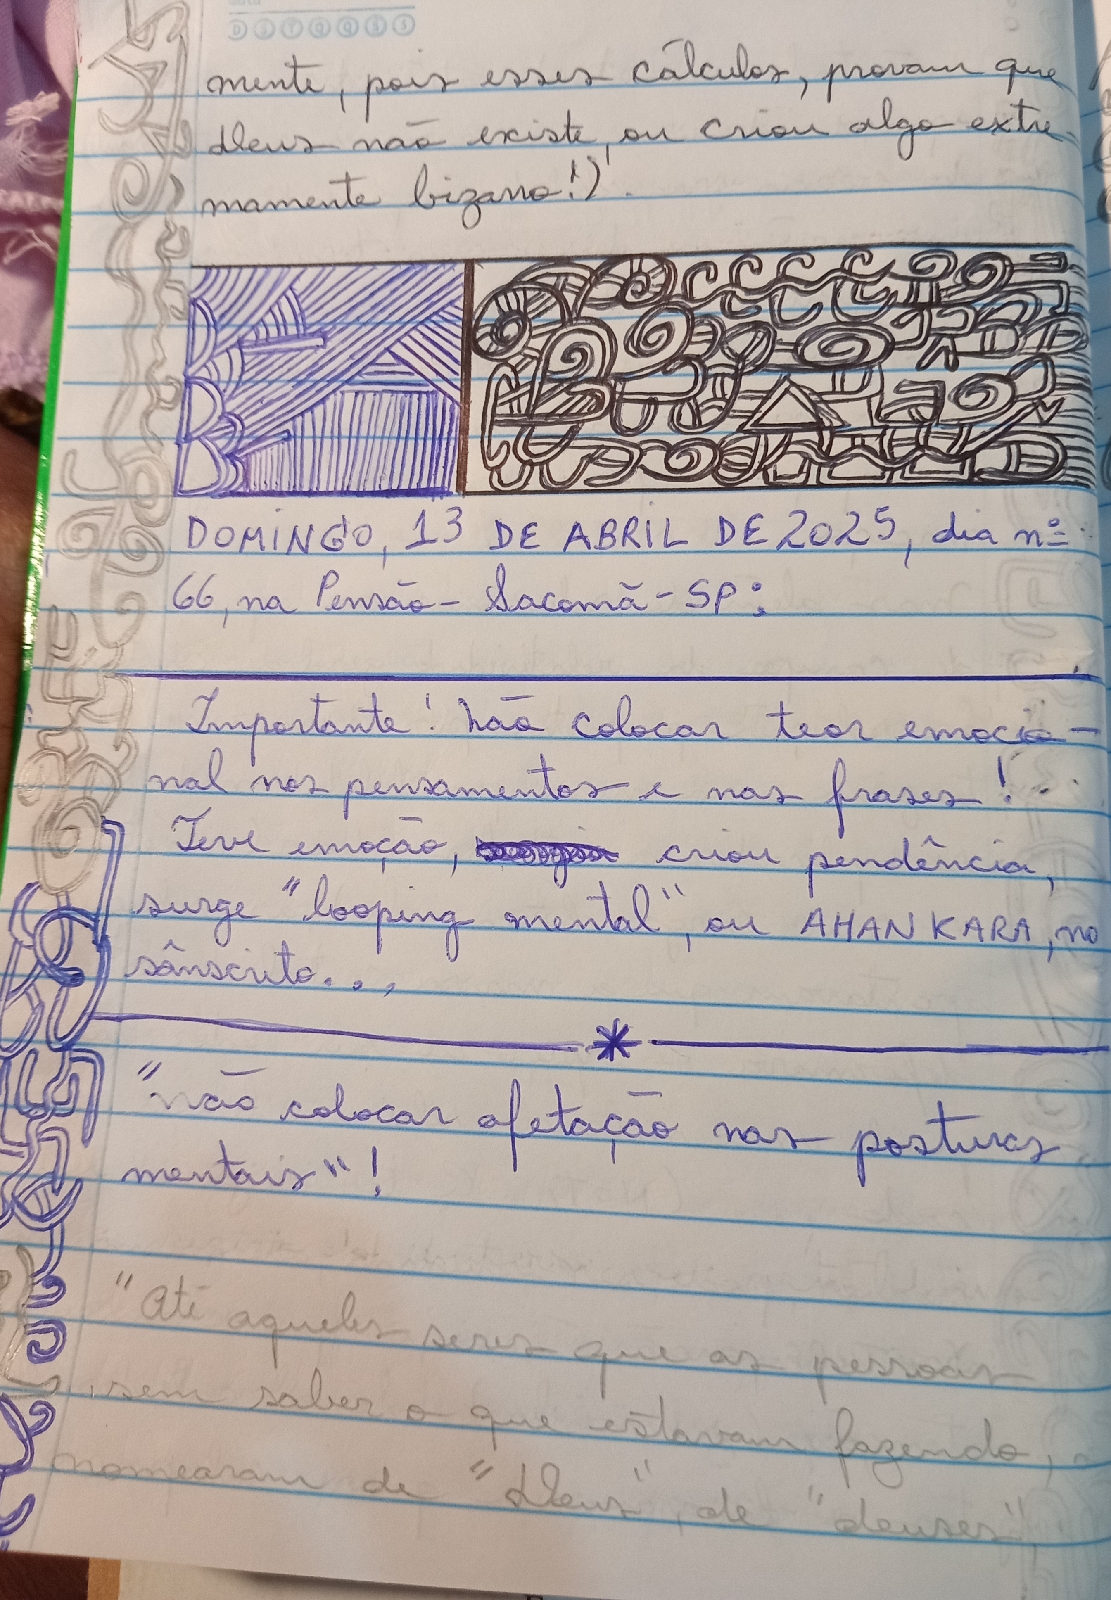 D S T Q Q S S
mente, pois esses cálculos, provam que
Deus não existe, ou criou algo extre-
mamente bizarro!)'.
DOMINGO, 13 DE ABRIL DE 2025, dia nº
66, na Pensão - Sacomã - SP:
Importante! Não colocar teor emocio-
nal nos pensamentos e nas frases!
Teve emoção, criou pendência,
surge "looping mental", ou AHANKARA, no
sânscrito...,
"não colocar afetação nas posturas
mentais"!
"Até aqueles seres que as pessoas
, sem saber o que estavam fazendo,
nomearam de "Deus", de "deuses"